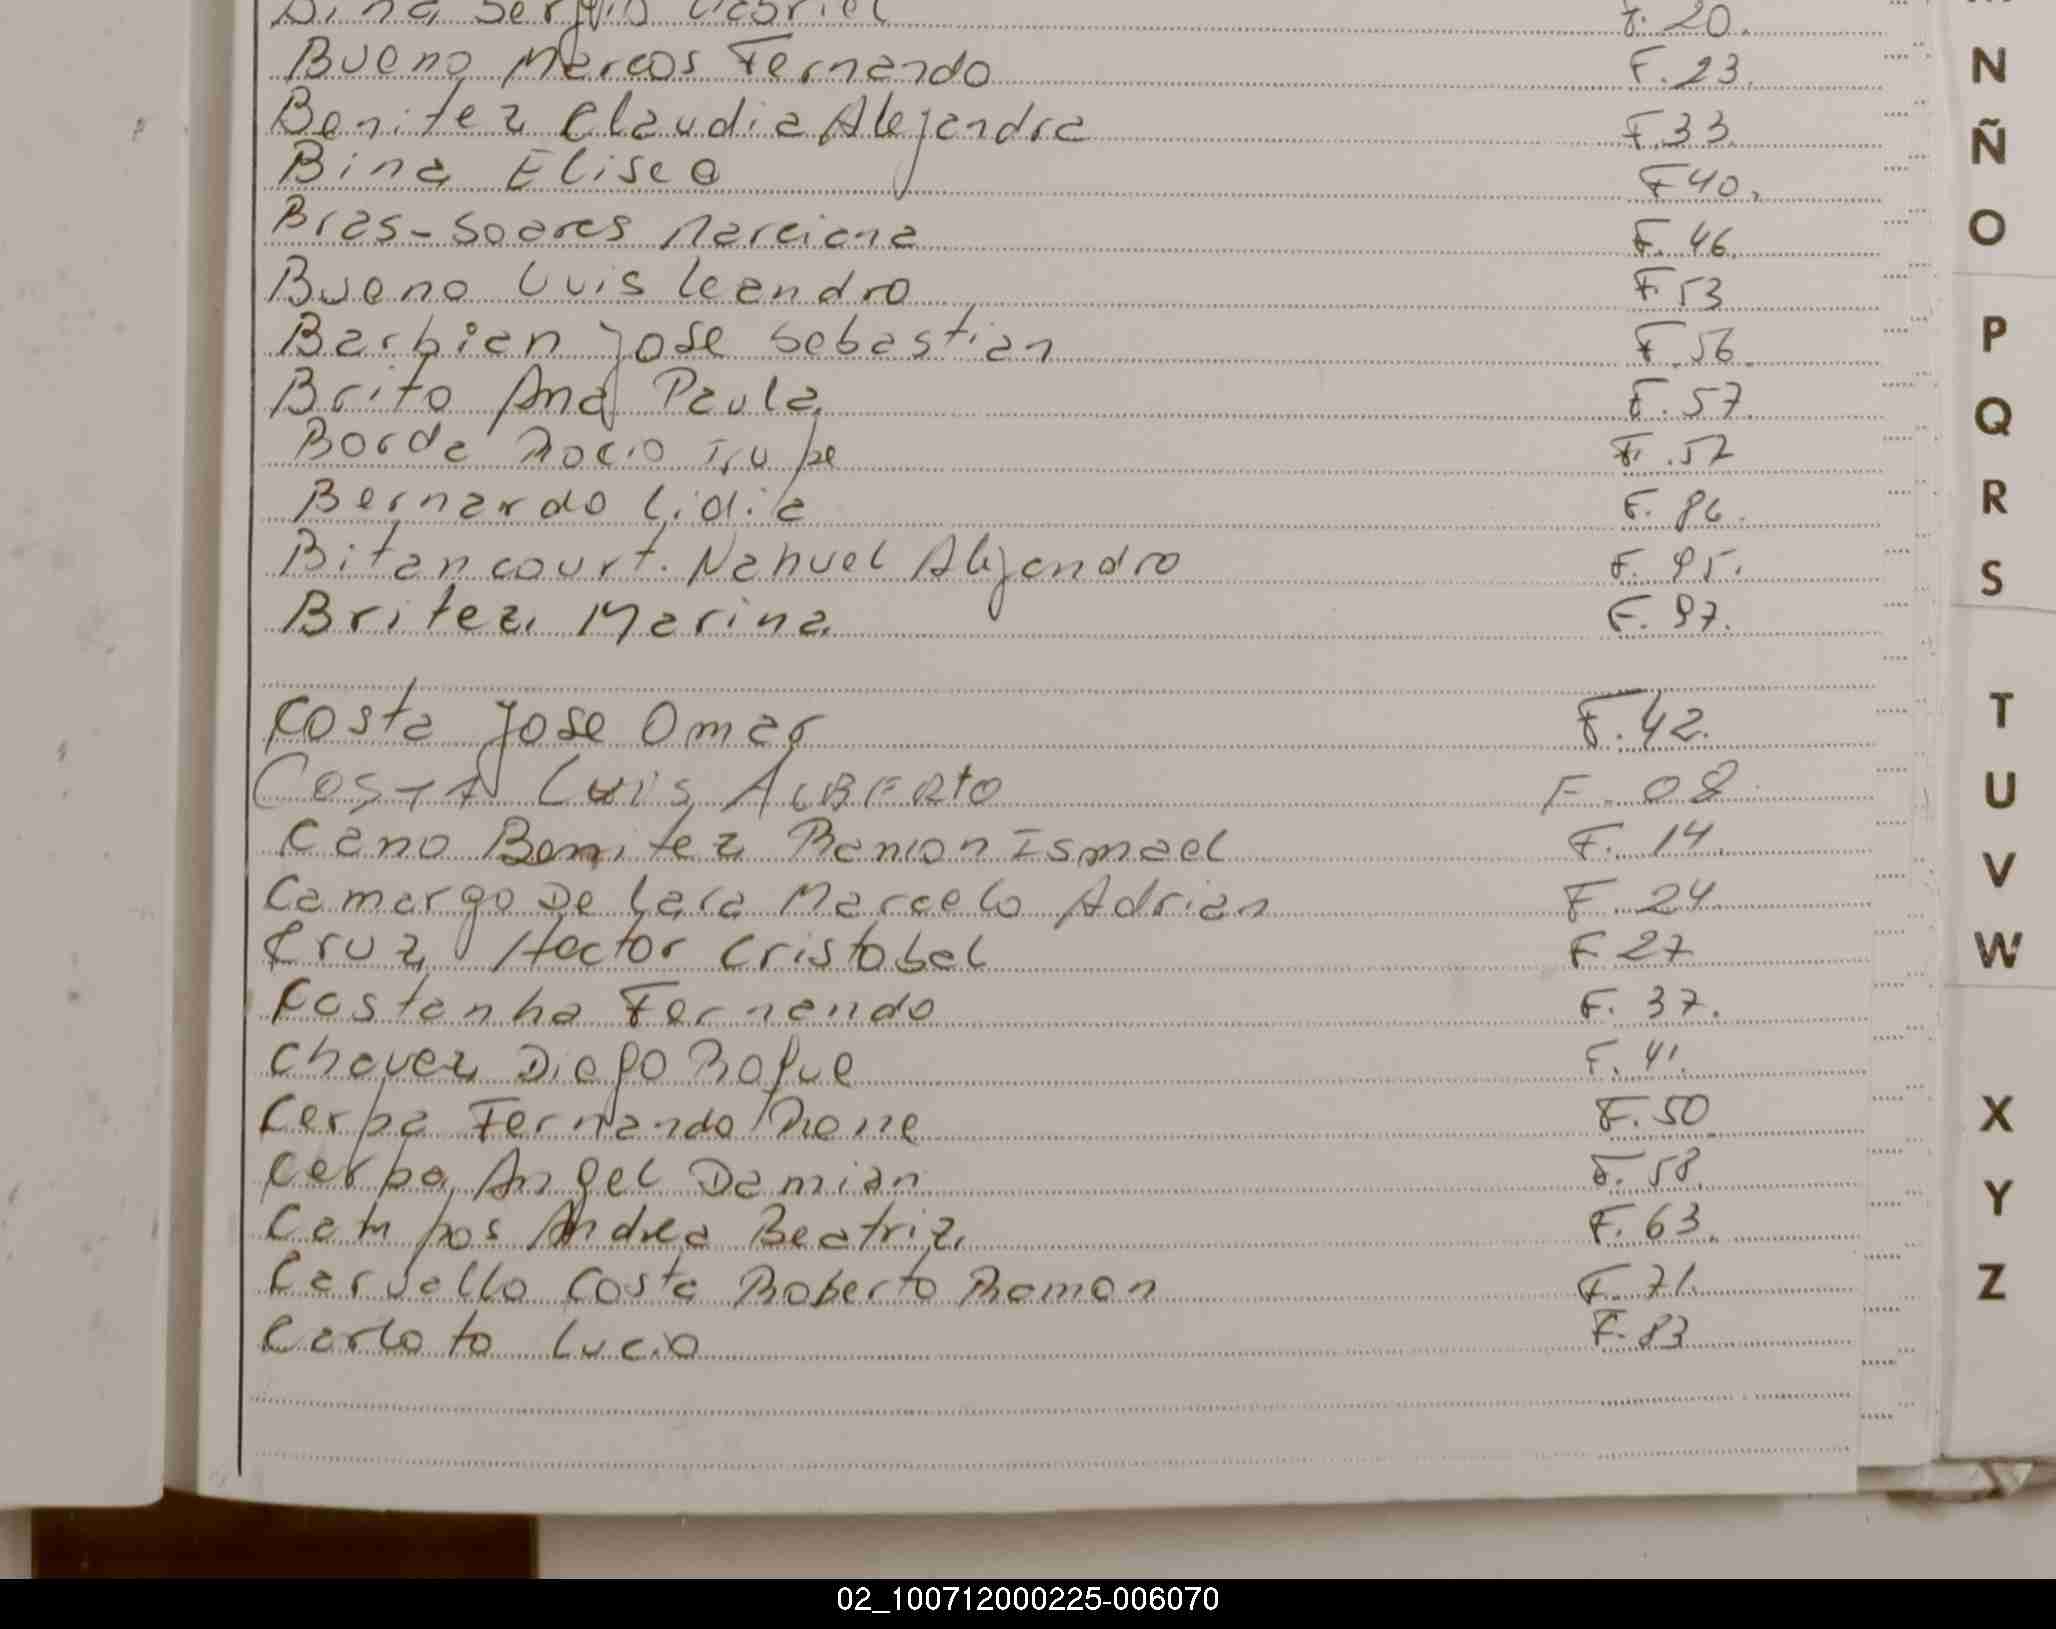 Bina Sergio Gabriel F. 20.
Bueno Marcos Fernando F. 23.
Benitez Claudia Alejandra F. 33.
Bina Eliseo F 40.
Bras-Soares Marciana F. 46.
Bueno Luis Leandro F 53
Barbian Jose Sebastian F. 56.
Brito Ana Paula F. 57.
Borda Rocio Irupe F. 57
Bernardo Lidia F. 86.
Bitancourt. Nahuel Alejandro F. 95.
Britez Marina F. 97.
Costa Jose Omar F. 42.
Costa Luis Alberto F. 08
Cano Benitez Ramon Ismael F. 14.
Camargo De Lara Marcelo Adrian F. 24.
Cruz Hector Cristobal F 27
Castanha Fernando F. 37.
Chavez Diego Roque F. 41.
Cerpa Fernando Rene F. 50.
Cerpa Angel Damian F. 58.
Campos Andrea Beatriz F. 63.
Carvallo Costa Roberto Ramon F. 71.
Carloto Lucio F. 83
N
Ñ
O
P
Q
R
S
T
U
V
W
X
Y
Z
02_100712000225-006070